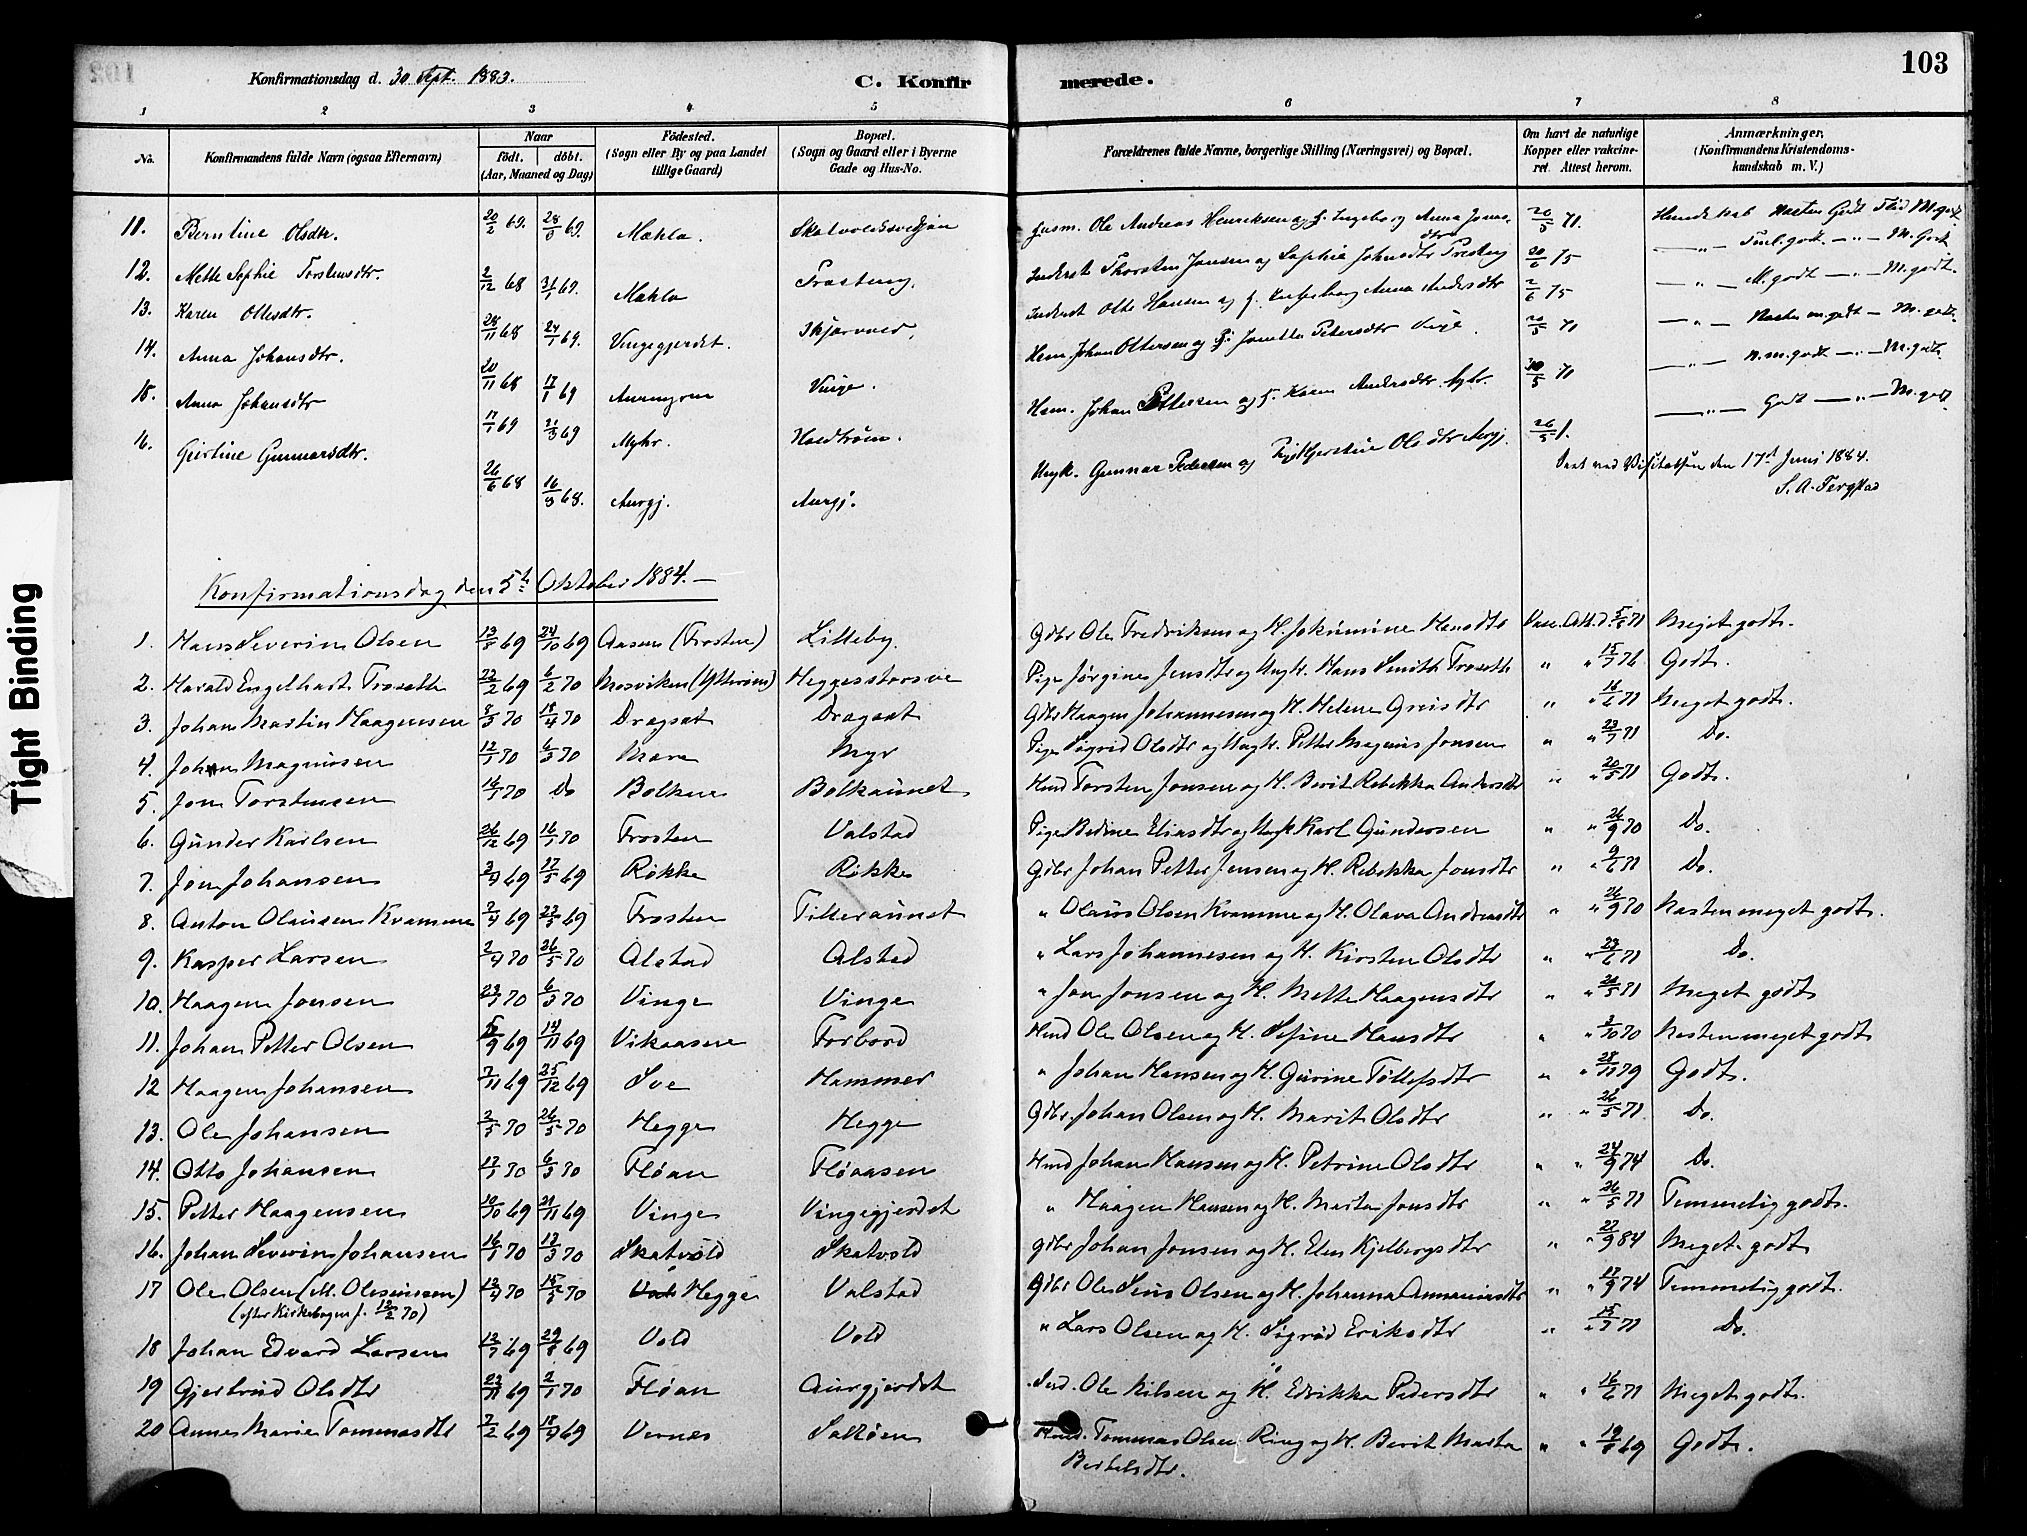 103
Konfirmationsdag d. 30 Sept. 1883.
C. Konfirmerede.
1 2 3 4 5 6 7 8
No.
Konfirmandens fulde Navn (ogsaa Efternavn)
Naar
født. døbt.
(Aar, Maaned og Dag)
Fødested.
(Sogn eller By og paa Landet
tillige Gaard)
Bopæl.
(Sogn og Gaard eller i Byerne
Gade og Hus-No.
Forældrenes fulde Navne, borgerlige Stilling (Næringsvei) og Bopæl.
Om havt de naturlige
Kopper eller vakcine-
ret. Attest herom.
Anmærkninger.
(Konfirmandens Kristendoms-
kundskab m. V.)
11. Berntine Olsdtr. 20/2 69. Mæhla. Husm. Ole Andreas Henriksen og H. Ingeborg Anna 20/5 71.
12. Mette Sophie Torstensdtr. 2/12 68 31/1 69. Mæhla Inderst Thorsten Jensen og Sophie Johnsdtr 20/6 75
13. Karen Ottesdtr. 28/11 68 24/1 69. Vingegjerdet. Inderst Otte Hansen og 2/6 75
14. Anna Johansdtr. 20/11 68 17/1 69 Vinge. Hsm. Johan Ottersen og 20/5 71
15. Anna Johansdtr 11/1 69 21/3 69 Myhr. Hsm. Johan Pettersen og H. Karen Andersdtr. 30/5 71
16. Gjertine Gunnarsdtr. 26/6 68 16/8 68. Aurgj. Aurgj. Ungk. Gunnar Pedersen og Olsdtr Aurgj.
Seet ved Visitatsen den 17de Juni 1884.
Konfirmationsdag den 5te Oktober 1884. —
1. Hans Severin Olsen 13/8 69 24/10 69 Aasen (Frosten) Lilleby Gdbr Ole Fredriksen og H. Jokumine Hansdtr Vacc. Att. d. 5/6 71 Meget godt.
2. Harald Engelhart Troseth 22/12 69 6/2 70 Mosviken (Ytterøen) Pige Jørgine Jensdtr og Ungk. Hans Smith Troseth " " 15/7 76 Godt.
3. Johan Martin Haagensen 8/3 70 18/4 70 Dragsat Dragsat Gdbr Haagen Johannesen og H. Helene Greisdtr " " 16/6 71 Meget godt.
4. Johan Magnusen 12/1 70 6/3 70 Myr Pige Sigrid Olsdtr og Ungk. Petter Magnus Jonsen " " 23/7 71 Do.
5. Jon Torstensen 16/1 70 Do Bolkan Bolkaunet Hmd Torsten Jonsen og H. Berit Rebekka Andersdtr " " 20/5 71 Godt.
6. Gunder Karlsen 26/12 69 16/1 70 Frosten Valstad Pige Bedine Eliasdtr og Ungk Karl Gundersen " " 26/9 70 Do.
7. Jon Johansen 3/4 69 17/5 69 Røkke Røkke Gdbr Johan Petter Jensen og H. Rebekka Jonsdtr " " 9/6 71 Do.
8. Anton Olausen Kvamme 2/4 69 23/5 69 Frosten Tilleraunet " Olaus Olsen Kvamme og H. Olava Andreasdtr " " 26/9 70 Næsten meget godt.
9. Kasper Larsen 2/4 70 26/5 70 Alstad Alstad " Lars Johannesen og H. Kirsten Olsdtr " " 23/6 71 Do.
10. Haagen Jonsen 23/1 70 6/3 70 Vinge Vinge " Jon Jonsen og H. Mette Haagensdtr " " 26/5 71 Meget godt
11. Johan Petter Olsen 5/9 69 14/11 69 Vikaasen Forbord Hmd Ole Olsen og H. Sefine Hansdtr " " 3/10 70 Næsten meget godt
12 Haagen Johansen 7/11 69 25/12 69 Sve Hammer " Johan Hansen og H. Gurine Tollefsdtr " " 28/11 79 Godt.
13. Ole Johansen 2/5 70 26/5 70 Hegge Hegge Gdbr. Johan Olsen og H. Marit Olsdtr " " 26/5 71. Do.
14. Otto Johansen 17/1 70 6/3 70 Fløan Fløaasen Hmd Johan Hansen og H. Petrine Olsdtr " " 24/9 74 Do.
15. Petter Haagensen 10/10 69 21/11 69 Vinge Vingegjerdet " Haagen Hansen og H. Marta Jonsdtr " " 26/5 71 Temmelig godt.
16. Johan Severin Johansen 16/1 70 13/3 70 Skatvold Skatvold Gdbr Johan Jonsen og H. Elen Kjelbergsdtr " " 27/9 84 Meget godt
17 Ole Olsen (M. Olesinssen) 13/4 70 15/5 70 Hegge Valstad Gdbr Ole Sius Olsen og H. Johanna Annaniasdtr " " 17/9 74 Temmelig godt.
(efter Kirkebogen f. 12/2 70)
18 Johan Edvard Larsen 12/7 69 29/8 69 Vold Vold " Lars Olsen og H. Sigrid Eriksdtr " " 15/7 71 Do.
19 Gjertrud Olsdtr 23/11 69 2/1 70 Fløan Aurgjerdet Ind. Ole Nilsen og H. Edvikka Pedersdtr " " 16/6 71 Meget godt.
20 Anne Marie Tommasdtr 7/2 69 18/4 69 Vernes Saltøen Hmd. Tommas Olsen Ring og H. Berit Marta " " 19/8 69 Godt.
Bertelsdtr.
Tight Binding